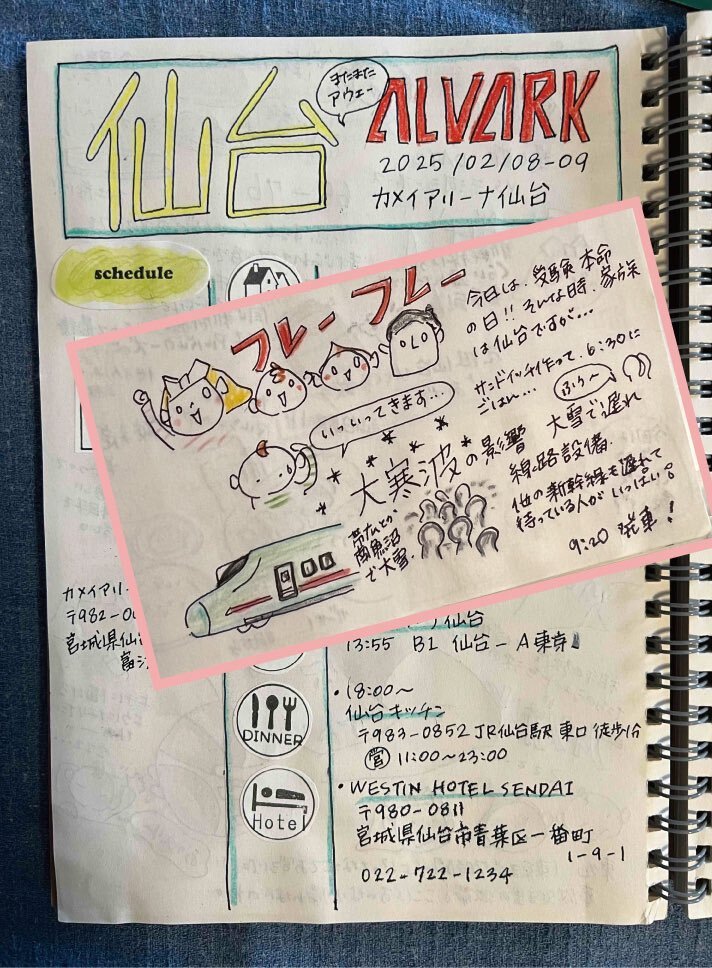 仙台
またまた
アウェー
ALVARK
2025/02/08-09
カメイアリーナ仙台
schedule
フレー フレー
今日は、受験本命
の日!! そんな時、家族
は仙台ですが…
サンドイッチ作って、6:30に
ごはん…
いっいってきます…
ふぅ〜
大寒波の影響
大雪で遅れ
線路設備.
他の新幹線も遅れて
待っている人がいっぱい。
帯広とか
南魚沼
で大雪.
9:20 発車!
カメイアリー
〒982-0
宮城県仙
富
仙台
13:55 B1 仙台-A東京
・18:00〜
仙台キッチン
〒983-0852 JR仙台駅東口徒歩1分
営 11:00〜23:00
DINNER
・WESTIN HOTEL SENDAI
〒980-0811
宮城県仙台市青葉区一番町
1-9-1
022-722-1234
Hotel